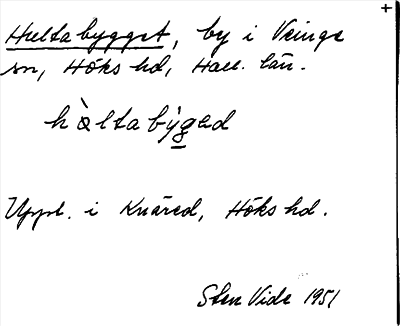 +
Hultabygget, by i Veinge
sn, Höks hd, Hall. län.
hàltabýgad
Uppt. i Knäred, Höks hd.
Sten Vide 1951